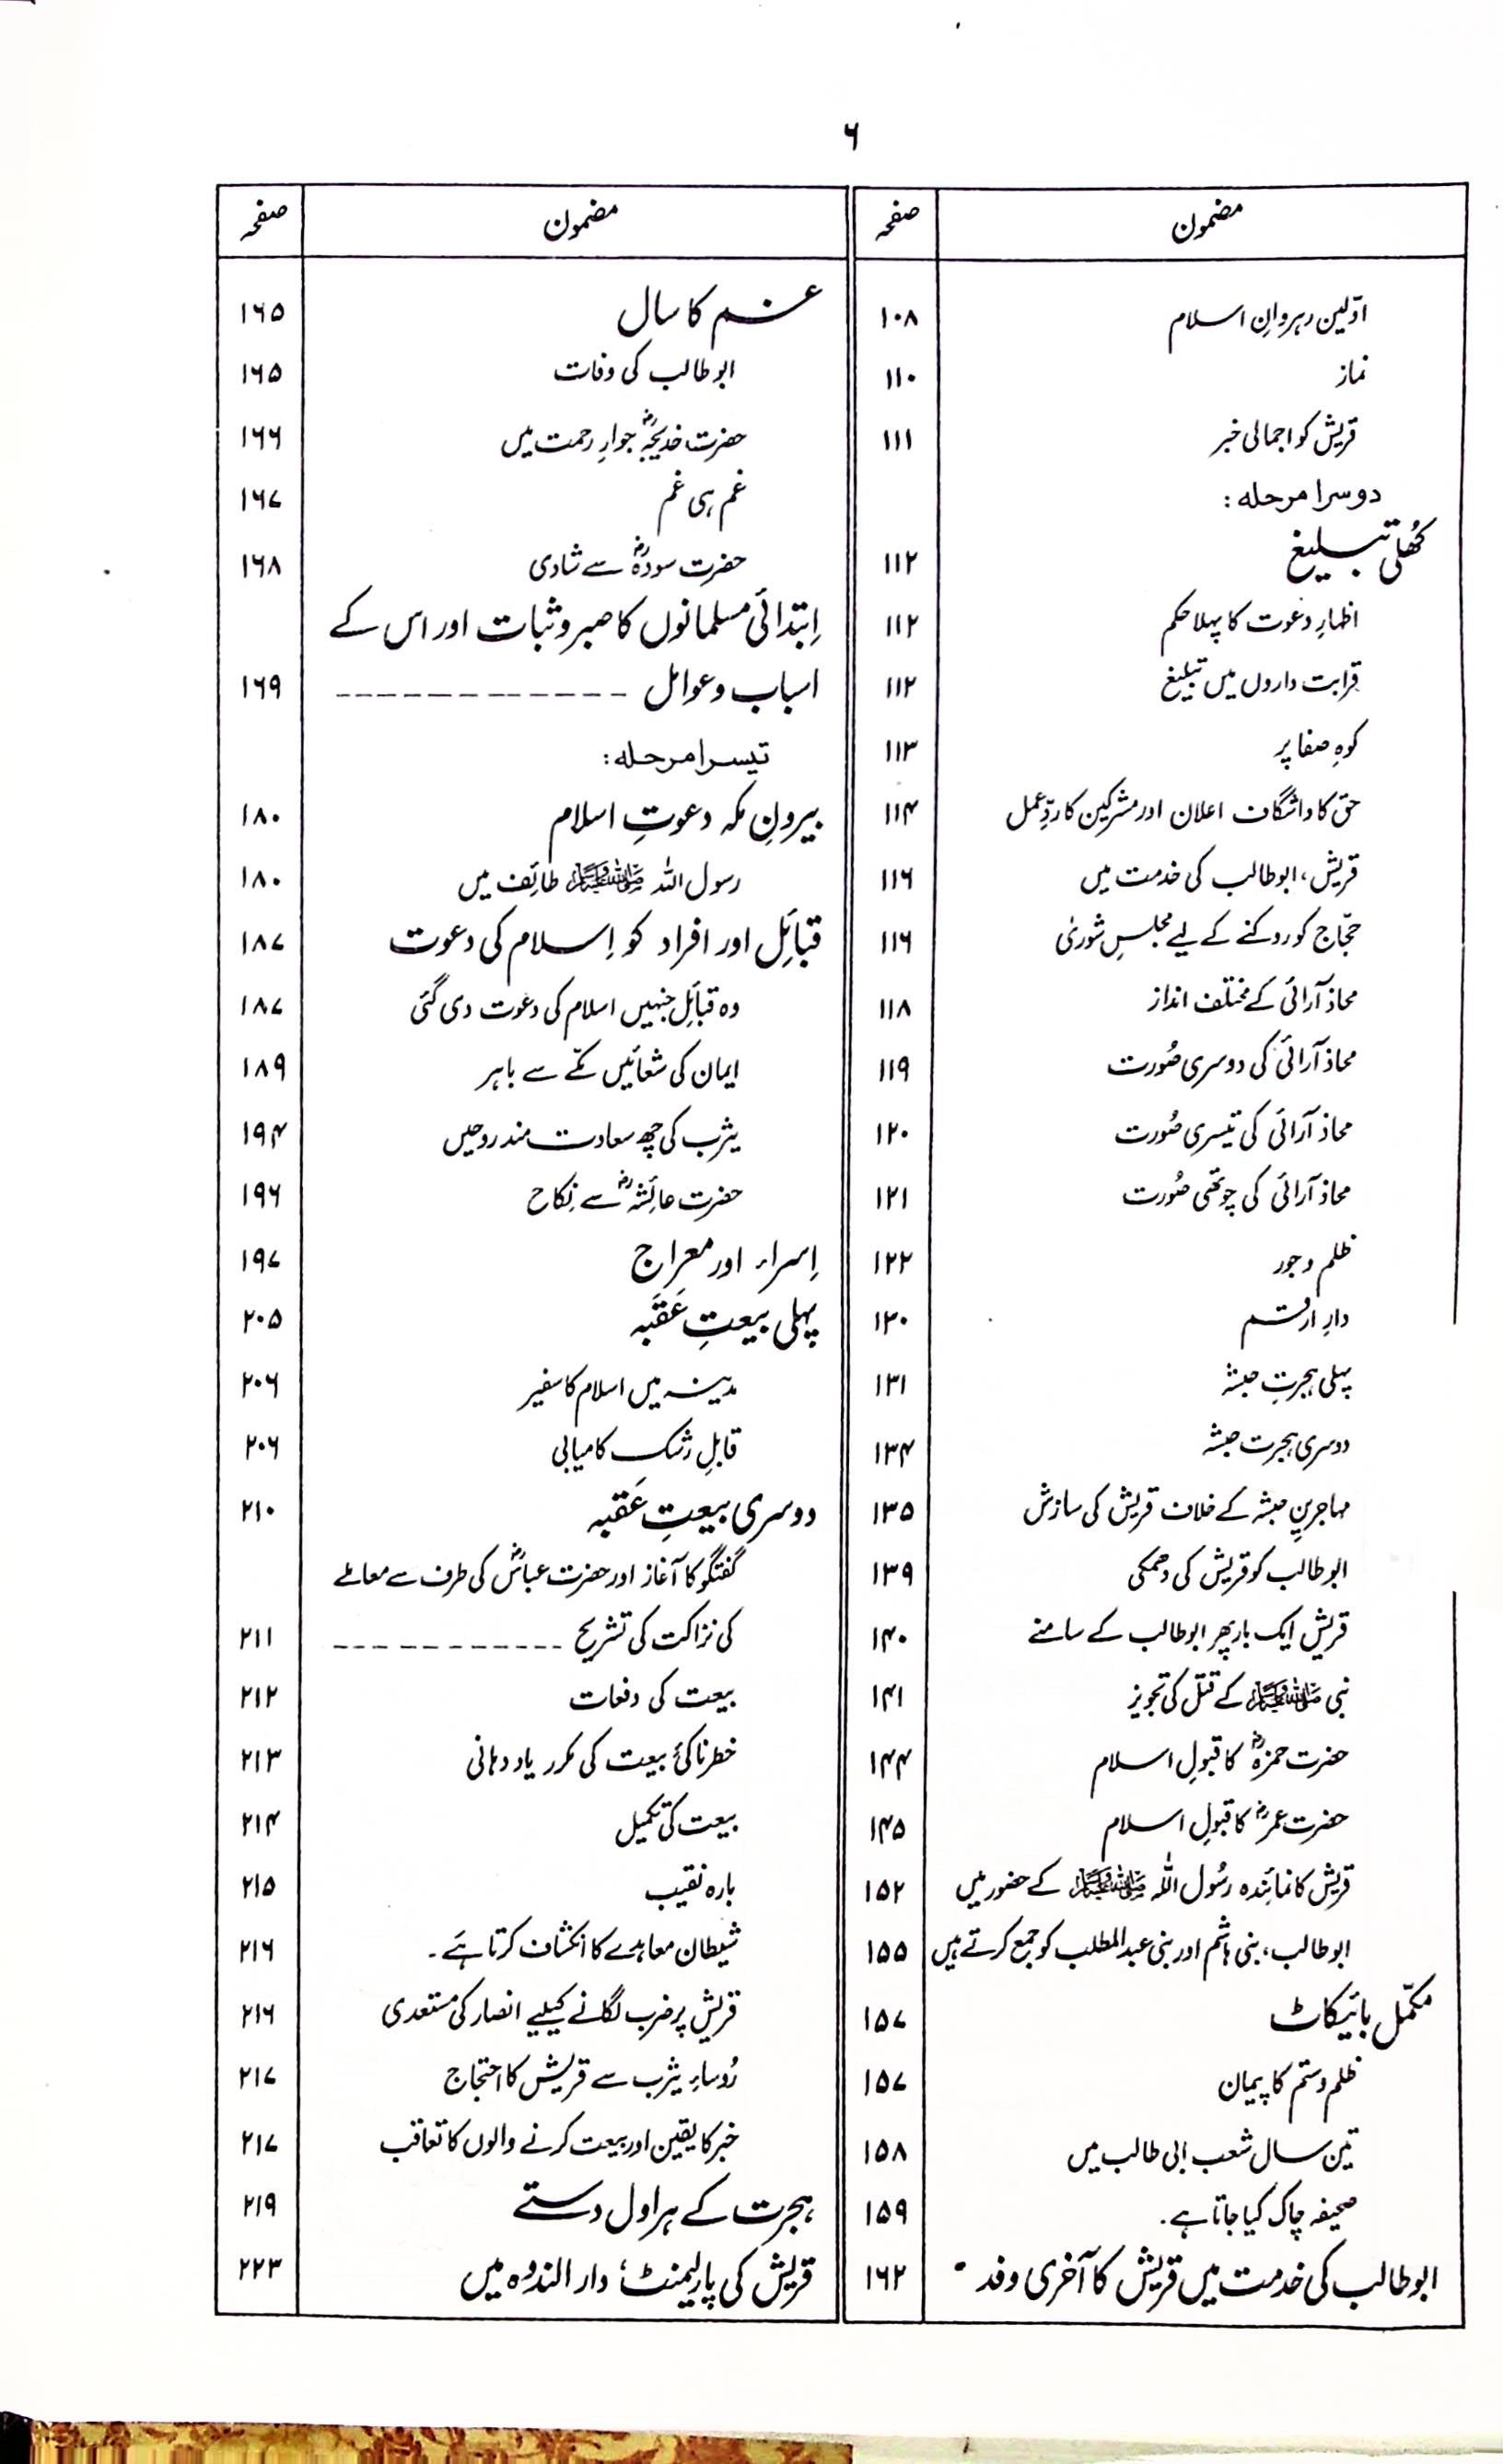 ۶
مضمون صفحہ
اوّلین رہروانِ اسلام ۱۰۸
نماز ۱۱۰
قریش کو اجمالی خبر ۱۱۱
دوسرا مرحلہ:
کھلی تبلیغ ۱۱۲
اظہارِ دعوت کا پہلا حکم ۱۱۲
قرابت داروں میں تبلیغ ۱۱۲
کوہِ صفا پر ۱۱۳
حق کا واشگاف اعلان اور مشرکین کا ردِّ عمل ۱۱۴
قریش، ابو طالب کی خدمت میں ۱۱۶
حجّاج کو روکنے کے لیے مجلسِ شوریٰ ۱۱۶
محاذ آرائی کے مختلف انداز ۱۱۸
محاذ آرائی کی دوسری صُورت ۱۱۹
محاذ آرائی کی تیسری صُورت ۱۲۰
محاذ آرائی کی چوتھی صُورت ۱۲۱
ظلم و جور ۱۲۲
دارِ ارقم ۱۳۰
پہلی ہجرتِ حبشہ ۱۳۱
دوسری ہجرت حبشہ ۱۳۴
مہاجرینِ حبشہ کے خلاف قریش کی سازش ۱۳۵
ابو طالب کو قریش کی دھمکی ۱۳۹
قریش ایک بار پھر ابو طالب کے سامنے ۱۴۰
نبی ﷺ کے قتل کی تجویز ۱۴۱
حضرت حمزہؓ کا قبولِ اسلام ۱۴۴
حضرت عمرؓ کا قبولِ اسلام ۱۴۵
قریش کا نمائندہ رسُول اللہ ﷺ کے حضور میں ۱۵۲
ابو طالب، بنی ہاشم اور بنی عبد المطلب کو جمع کرتے ہیں ۱۵۵
مکمّل بائیکاٹ ۱۵۷
ظلم و ستم کا پیمان ۱۵۷
تین سال شعب ابی طالب میں ۱۵۸
صحیفہ چاک کیا جاتا ہے۔ ۱۵۹
ابو طالب کی خدمت میں قریش کا آخری وفد ۱۶۲
مضمون صفحہ
غم کا سال ۱۶۵
ابو طالب کی وفات ۱۶۵
حضرت خدیجہؓ جوارِ رحمت میں ۱۶۶
غم ہی غم ۱۶۷
حضرت سودہؓ سے شادی ۱۶۸
اِبتدائی مسلمانوں کا صبر و ثبات اور اس کے
اسباب و عوامل ------------- ۱۶۹
تیسرا مرحلہ:
بیرونِ مکہ دعوتِ اسلام ۱۸۰
رسول اللہ ﷺ طائف میں ۱۸۰
قبائل اور افراد کو اِسلام کی دعوت ۱۸۷
وہ قبائل جنہیں اسلام کی دعوت دی گئی ۱۸۷
ایمان کی شعائیں مکّے سے باہر ۱۸۹
یثرب کی چھ سعادت مند روحیں ۱۹۴
حضرت عائشہؓ سے نِکاح ۱۹۶
اِسراء اور معراج ۱۹۷
پہلی بیعتِ عَقَبَہ ۲۰۵
مدینہ میں اسلام کا سفیر ۲۰۶
قابلِ رشک کامیابی ۲۰۶
دوسری بیعتِ عَقبہ ۲۱۰
گفتگو کا آغاز اور حضرت عباسؓ کی طرف سے معاملے
کی نزاکت کی تشریح ----------- ۲۱۱
بیعت کی دفعات ۲۱۲
خطرناکئ بیعت کی مکرر یاد دہانی ۲۱۳
بیعت کی تکمیل ۲۱۴
بارہ نقیب ۲۱۵
شیطان معاہدے کا انکشاف کرتا ہَے۔ ۲۱۶
قریش پر ضرب لگانے کیلیے انصار کی مستعدی ۲۱۶
رُوساءِ یثرب سے قریش کا احتجاج ۲۱۷
خبر کا یقین اور بیعت کرنے والوں کا تعاقب ۲۱۷
ہجرت کے ہراول دستے ۲۱۹
قریش کی پارلیمنٹ؛ دار الندوہ میں ۲۲۳